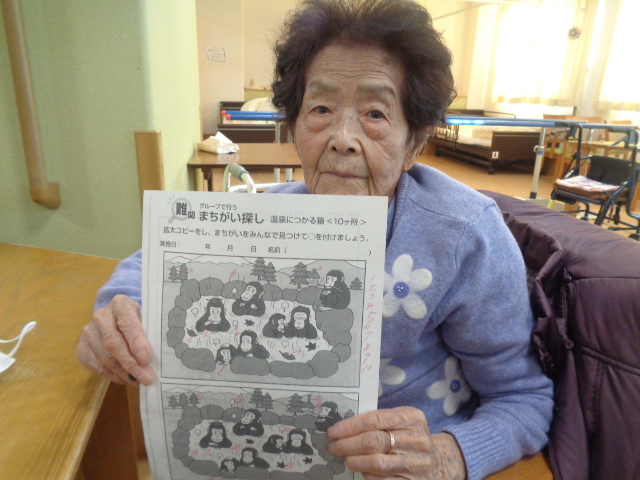 難関
グループで行う
まちがい探し 温泉につかる猿 <10ヶ所>
拡大コピーをし、まちがいをみんなで見つけて○を付けましょう。
実施日： 年 月 日 名前（ ）